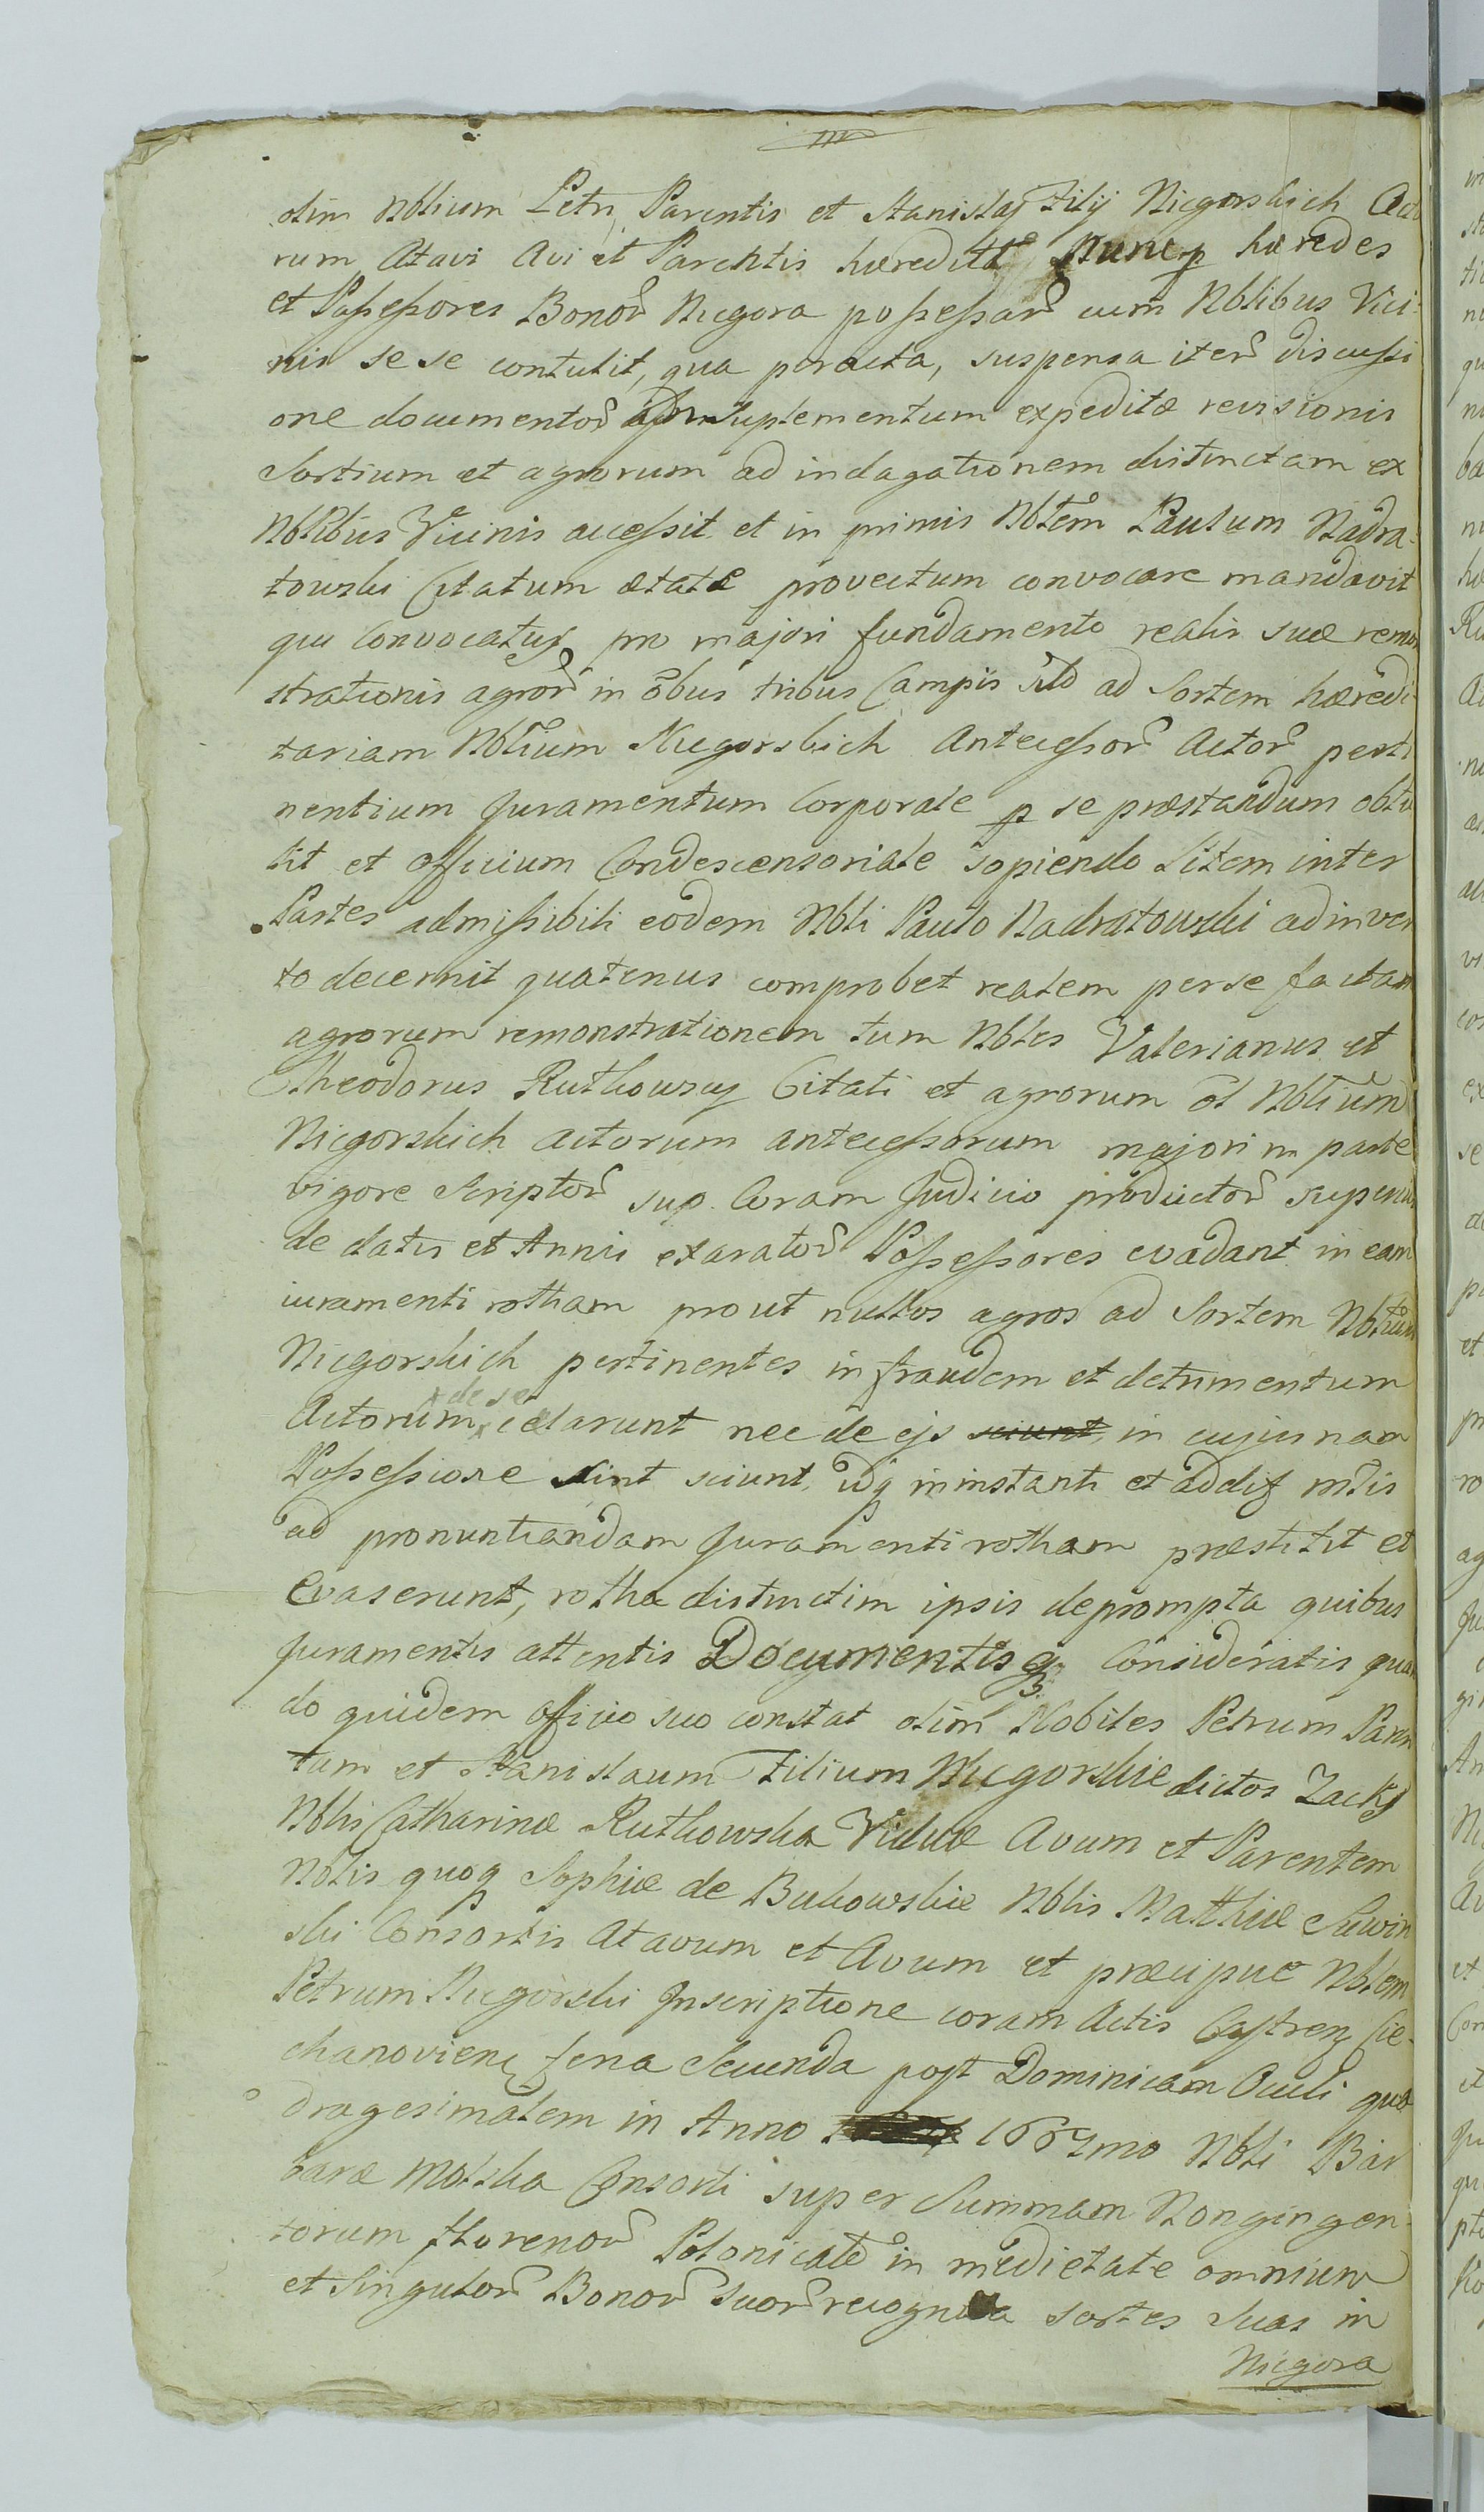 olim Nblium Petri Parentis et Stanislaj Filij Niegorskich Acto
rum Atavi Avi et Parentis hæredita Nunc p hæredes
et Possessores Bonor Niegora possessar cum Nblibus Vici-
nis se se contulit, qua peracta, suspensa iter discussi
one documentor suplementum expeditæ revisionis
Sortium et agrorum ad indagationem distinctam ex
Nblibus Vicinis accessit et in primis Nblem Paulum Nadra-
towski Citatum ætate provectum convocare mandavit
qui Convocatus pro majori fundamento realis suæ remon
strationis agror in obus tribus Campis sito ad Sortem hæredi-
tariam Nblium Niegorskich Antecessor Actor perti
nentium Juramentum Corporale p se præstandum obtu
lit et Officium Condescensoriale sopiendo Litem inter
Partes admissibili eodem Nbli Paulo Nadratowski adinven
to decernit quatenus comprobet realem per se factam
agrorum remonstrationem tum Nbles Valerianus et
Theodorus Rutkowscy Citati et agrorum ol Nblium
Niegorskich Actorum antecessorum majori in parte
vigore Scriptor sup Coram Judicio productor superius
de datis et Annis exarator Possessores evadant in eam
iuramenti rotham prout nullos agros ad Sortem Nblium
Niegorskich pertinentes in fraudem et detrimentum
de se
Actorum celarunt nec de ejs sciunt, in cujusnam
Possessione sint sciunt, idq in instanti et addis mtis
ad pronuntiandam Juramenti rotham præstitit et
Evaserunt, rotha distinctim ipsis deprompta quibus
Juramentis attentis Documentisq Consideratis quan
do quidem officio suo constat olim Nobiles Petrum Paren
tem et Stanislaum Filium Niegorskie dictos Zacks
Nblis Catharinæ Rutkowska Viduæ Avum et Parentem
Nblis quoq Sophiæ de Bukowskie Nblis Matthiæ Suwin
ski Consortis Atavum et Avum et præcipue Nblem
Petrum Niegorski Inscriptione coram Actis Castren Cie-
chanovien feria Secunda post Dominicam Oculi qua
dragesimalem in Anno 1667mo Nbli Bar
baræ Molska Consorti super Summam Nongingen-
torum florenor Polonicale in medietate omnium
et Singulor Bonor Suor recognita sortes Suas in
Niegora